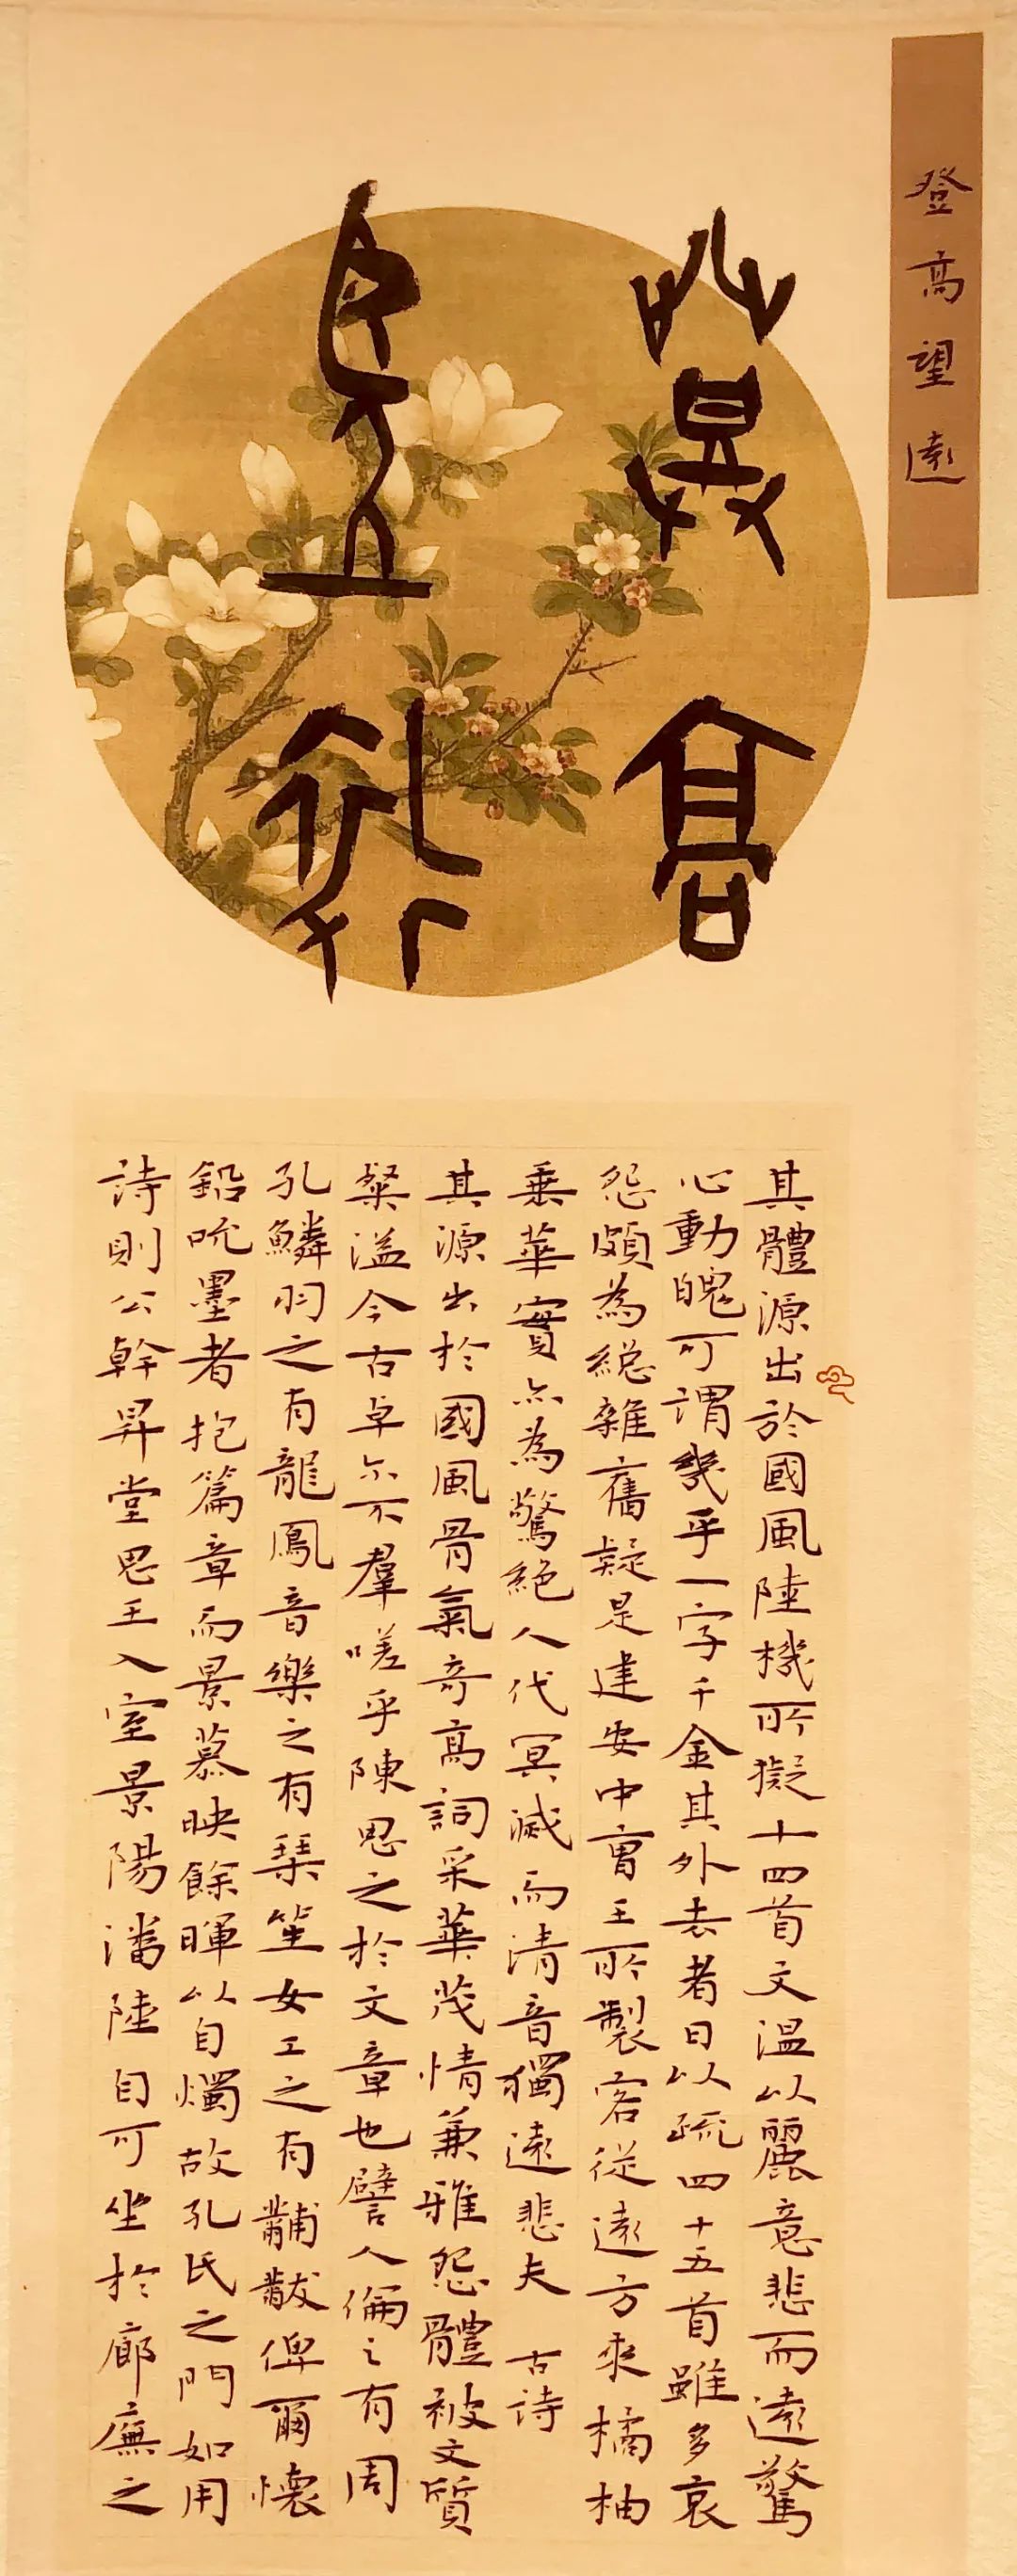 登高望遠
登高
望遠
其體源出於國風陸機所擬十四首文溫以麗意悲而遠驚
心動魄可謂幾乎一字千金其外去者日以疏四十五首雖多哀
怨頗為總雜舊疑是建安中曹王所製客從遠方來橘柚
垂華實亦為驚絕人代冥滅而清音獨遠悲夫 古詩
其源出於國風骨氣奇高詞采華茂情兼雅怨體被文質
粲溢今古卓尒不羣嗟乎陳思之於文章也譬人倫之有周
孔鱗羽之有龍鳳音樂之有琴笙女工之有黼黻俾爾懷
鉛吮墨者抱篇章而景慕映餘暉以自燭故孔氏之門如用
詩則公幹昇堂思王入室景陽潘陸自可坐於廊廡之